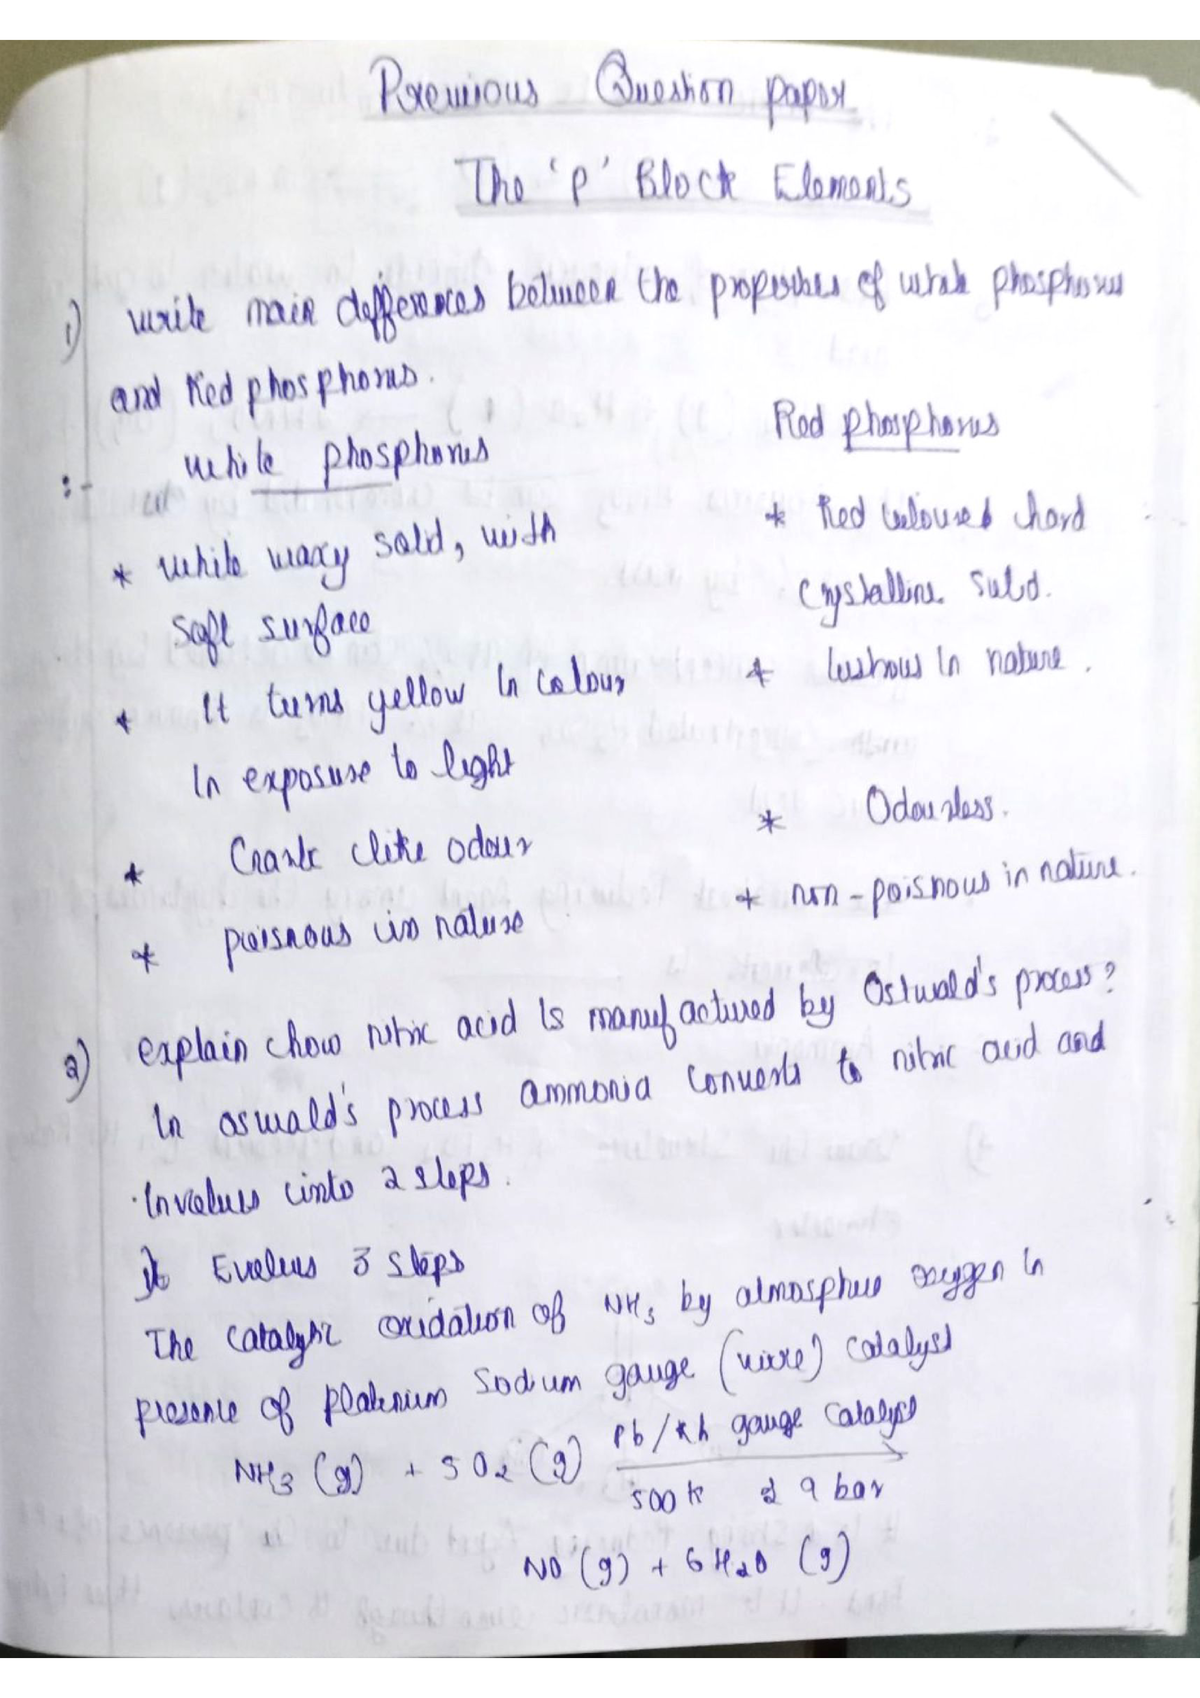 Previous Question paper
The 'P' Block Elements
1) write main differences between the properties of white phosphorus
and Red phosphorus.
:- white phosphorus Red phosphorus
* white waxy solid, with * Red coloured hard
soft surface crystalline solid.
* It turns yellow in colour * lustrous in nature.
In exposure to light
* odour * Odourless.
* poisnous in nature * non-poisnous in nature.
2) explain how nitric acid is manufactured by Ostwald's process?
In oswald's process ammonia converts to nitric acid and
into 2 steps.
It 3 steps
The catalytic oxidation of NH3 by oxygen in
presence of Sodium gauge (wire) catalyst
NH3 (g) + 5 O2 (g) Pb/Rh gauge catalyst
500 k & 9 bar
NO (g) + 6 H2O (g)